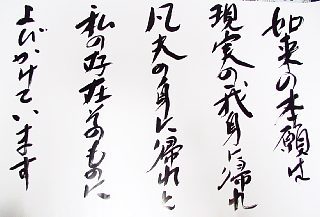 如来の本願は
現実の我身に帰れ
凡夫の身に帰れと
私の存在そのものに
よびかけています